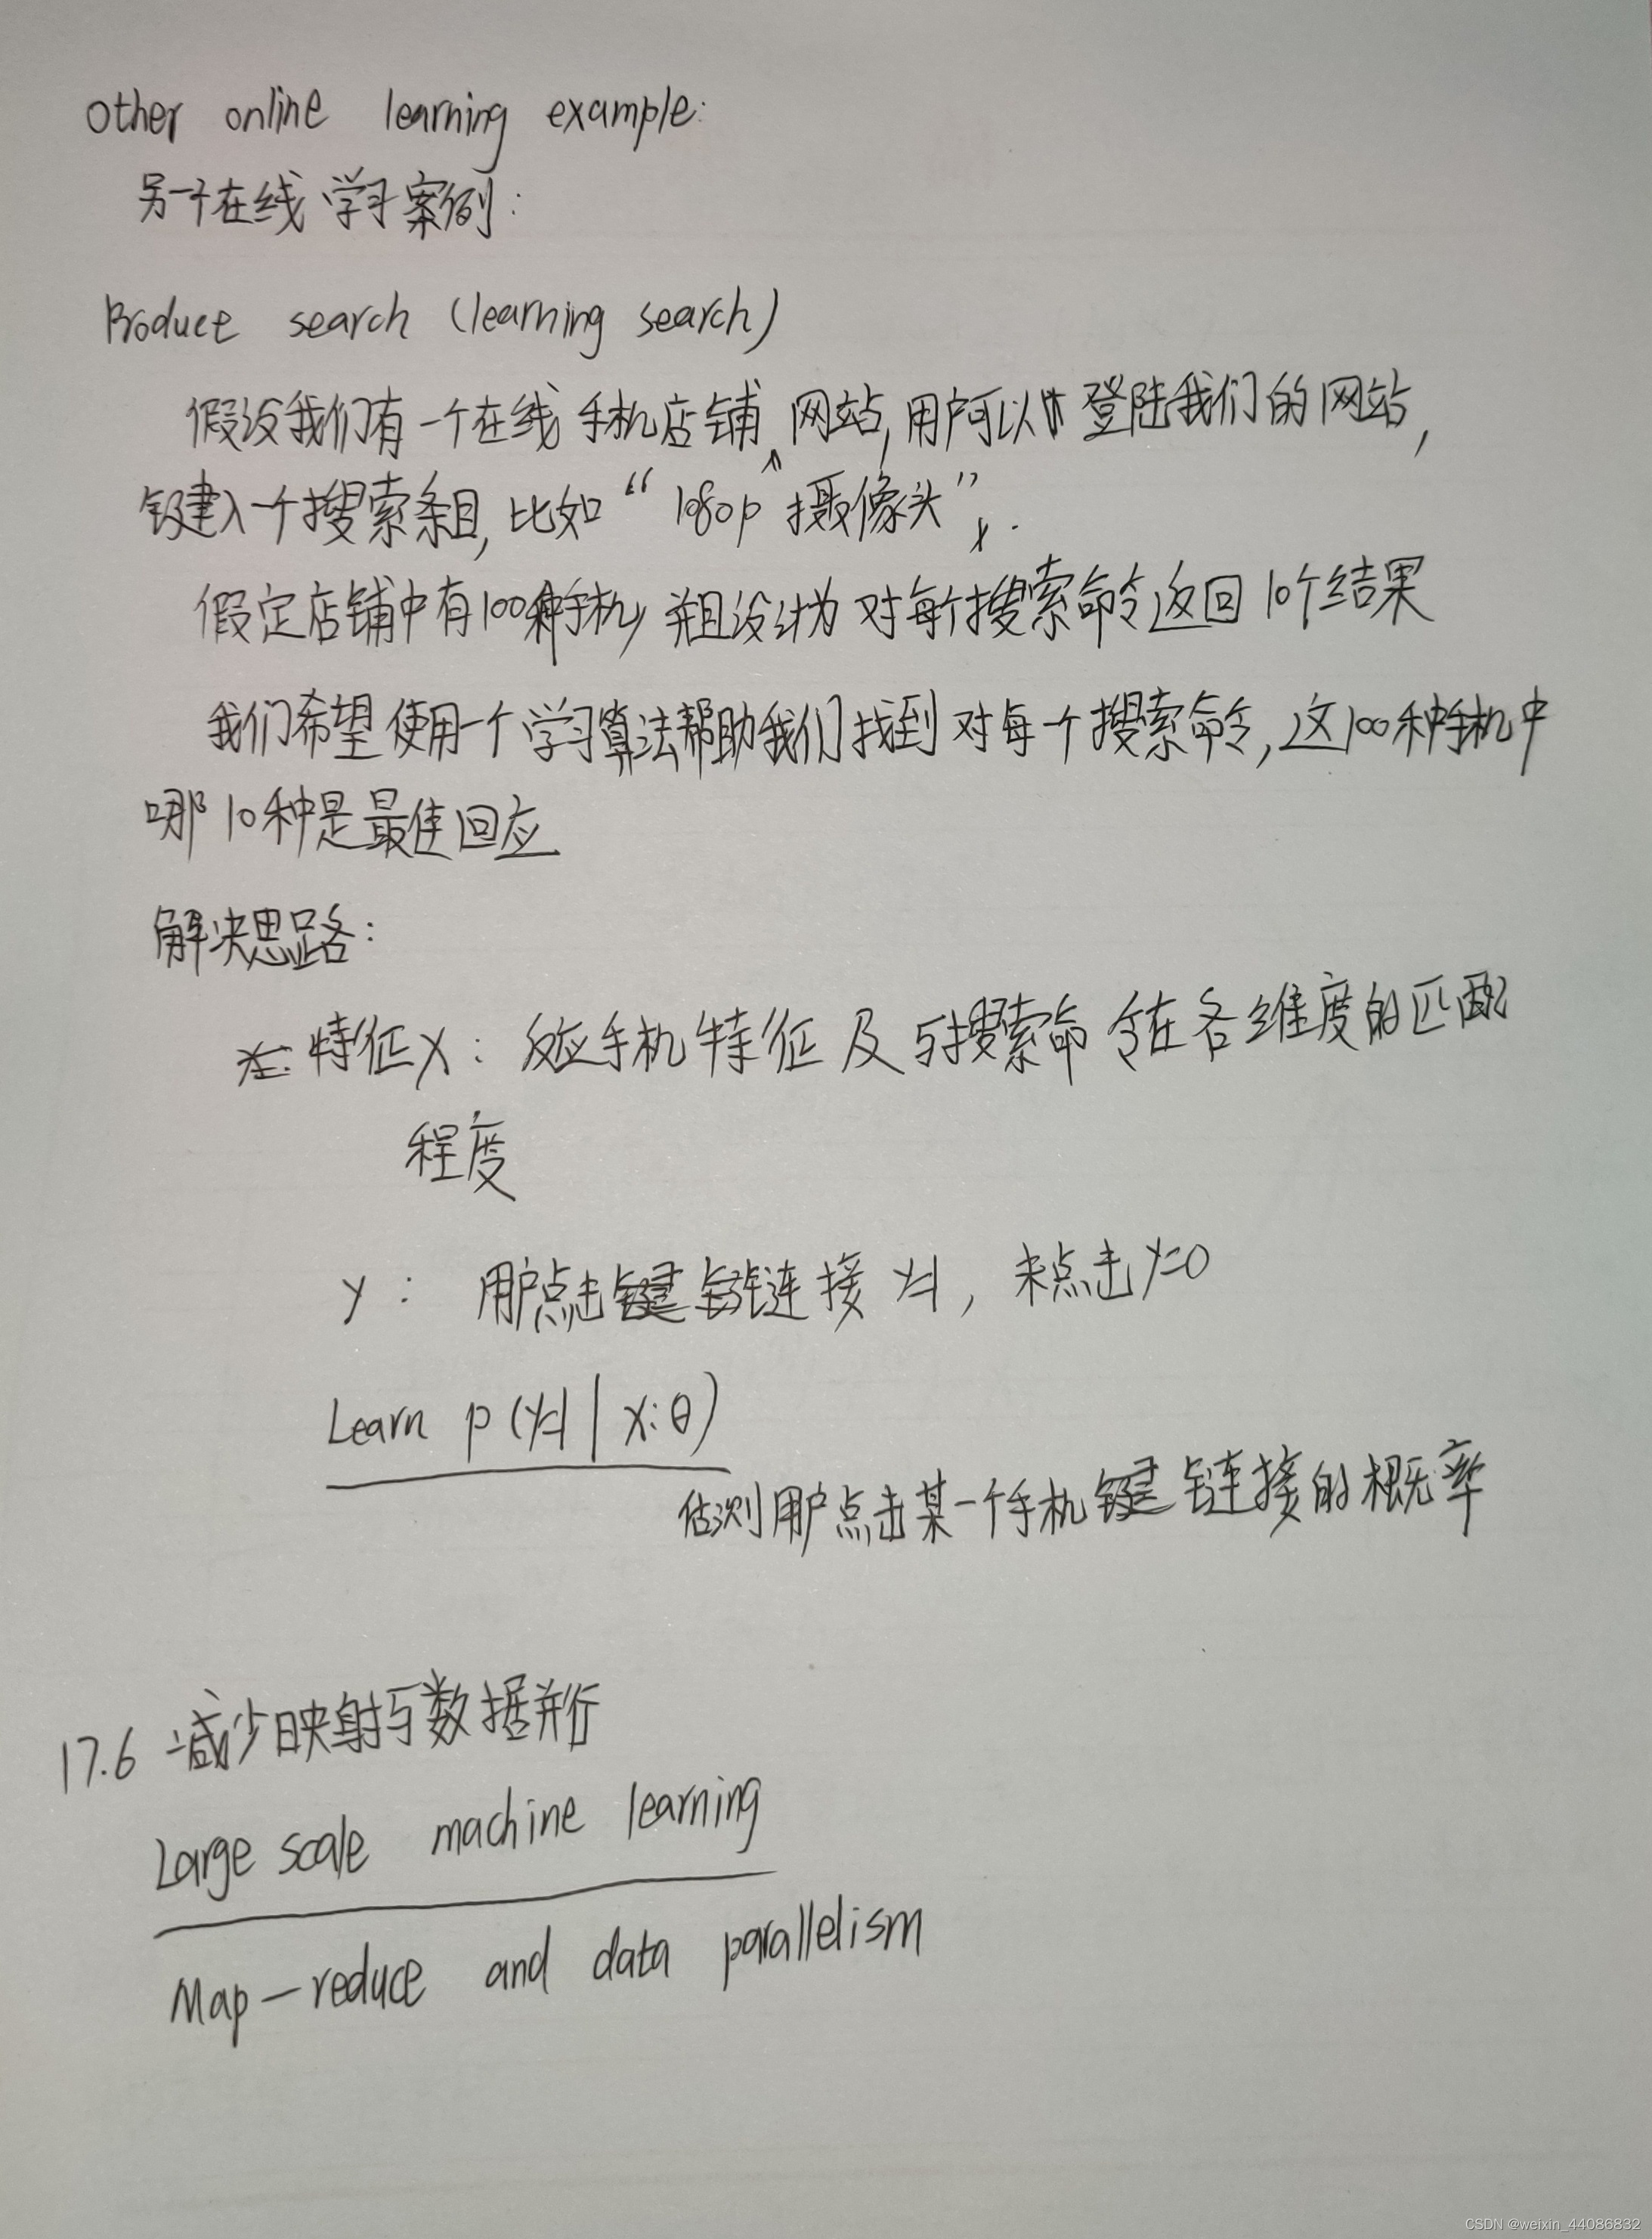 Other online learning example:
另一个在线学习案例:
Produce search (learning search)
假设我们有一个在线手机店铺网站,用户可以登陆我们的网站,
键入一个搜索条目,比如“1080p 摄像头”.
假定店铺中有100种手机,并且设计为对每个搜索命令返回10个结果
我们希望使用一个学习算法帮助我们找到对每一个搜索命令,这100种手机中
哪10种是最佳回应
解决思路:
特征X:反应手机特征及与搜索命令在各维度的匹配
程度
y: 用户点击链连接 y=1, 未点击 y=0
Learn p(y=1|x:θ)
估测用户点击某一个手机链连接的概率
17.6 减少映射与数据并行
Large scale machine learning
Map-reduce and data parallelism
CSDN @weixin_44086832